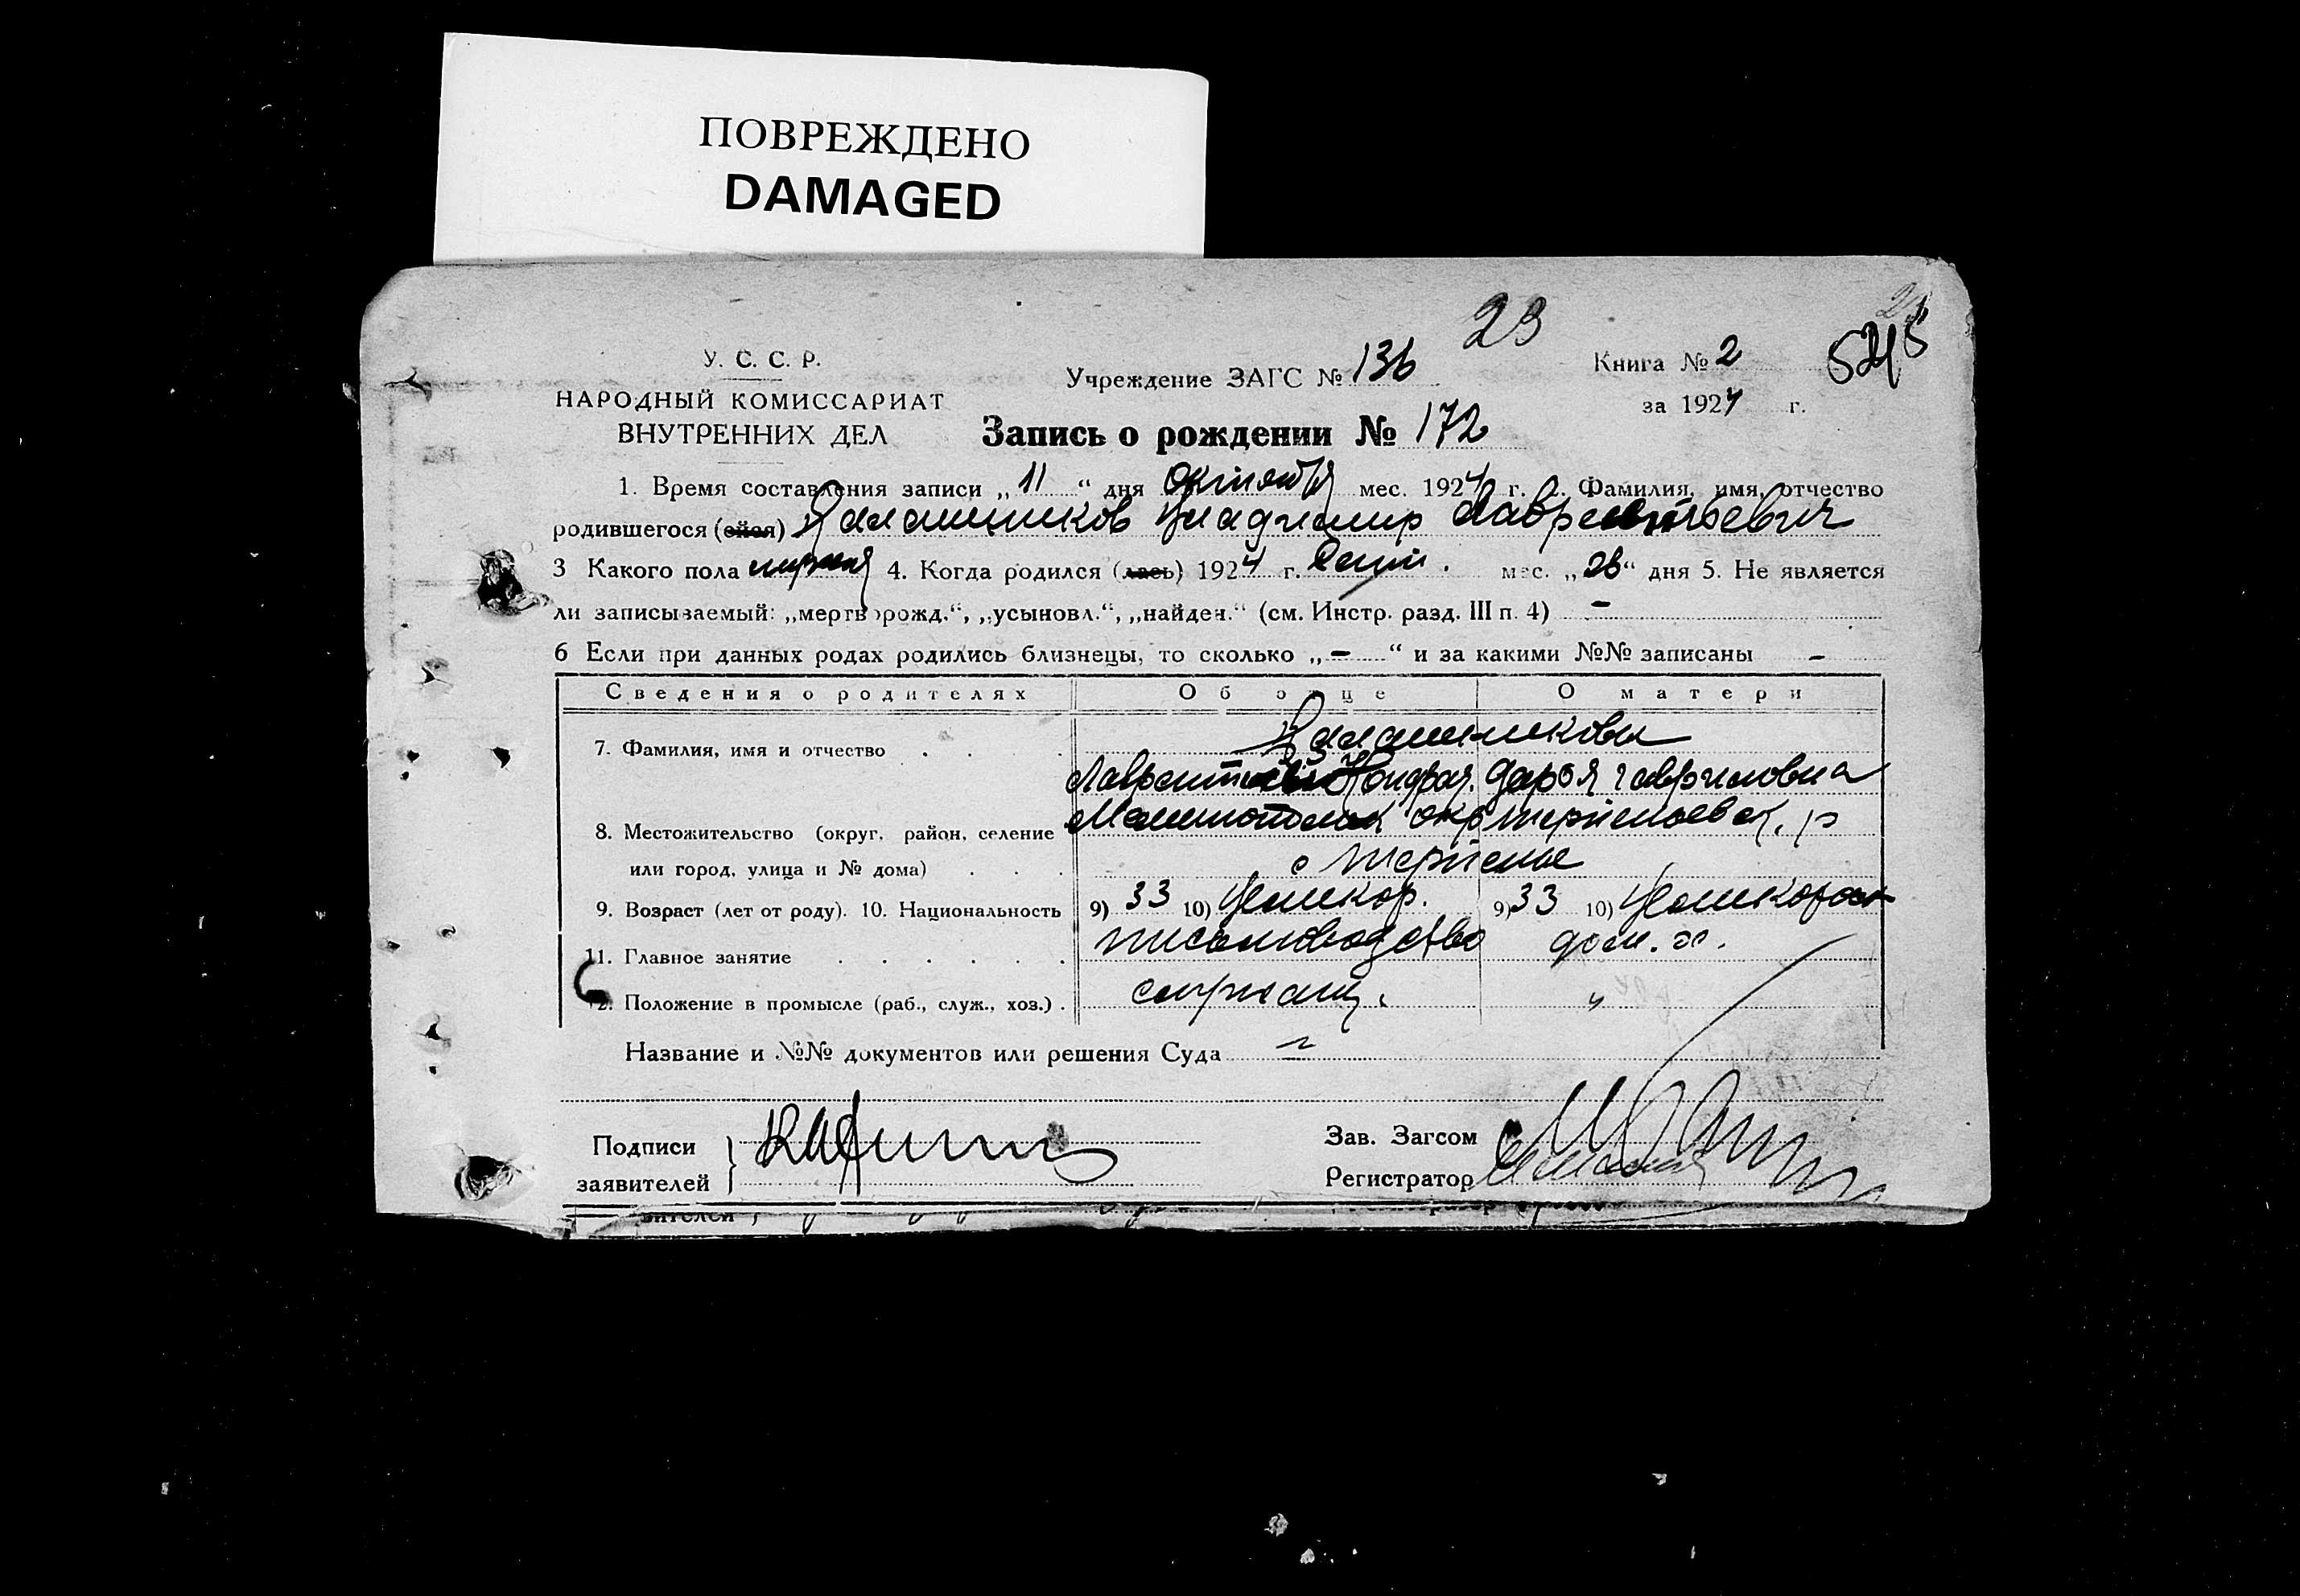 ПОВРЕЖДЕНО
DAMAGED
23
У. С. С. Р.
НАРОДНЫЙ КОМИССАРИАТ
ВНУТРЕННИХ ДЕЛ
Учреждение ЗАГС № 136
Книга № 2
за 1924 г.
Запись о рождении № 172
1. Время составления записи „11“ дня октября мес. 1924 г. 2. Фамилия, имя, отчество
родившегося (ейся) Калашников Владимир Лаврентьевич
3 Какого пола мужск 4. Когда родился (лась) 1924 г. Сент. мес. „26“ дня 5. Не является
ли записываемый: „мертворожд.“, „усыновл.“, „найден.“ (см. Инстр. разд. III п. 4) -
6 Если при данных родах родились близнецы, то сколько „-“ и за какими №№ записаны -
Сведения о родителях Об отце О матери
7. Фамилия, имя и отчество . . . Калашниковы
Дарья Гавриловна
8. Местожительство (округ, район, селение Мелитопольск окр Терпеньевск. р
или город, улица и № дома) . . . с Терпенье
9. Возраст (лет от роду). 10. Национальность 9) 33 10) 9) 33 10)
11. Главное занятие . . . . . . письмоводство дом. х.
12. Положение в промысле (раб., служ., хоз.) . служащ. „
Название и №№ документов или решения Суда
Подписи
заявителей
Зав. Загсом
Регистратор